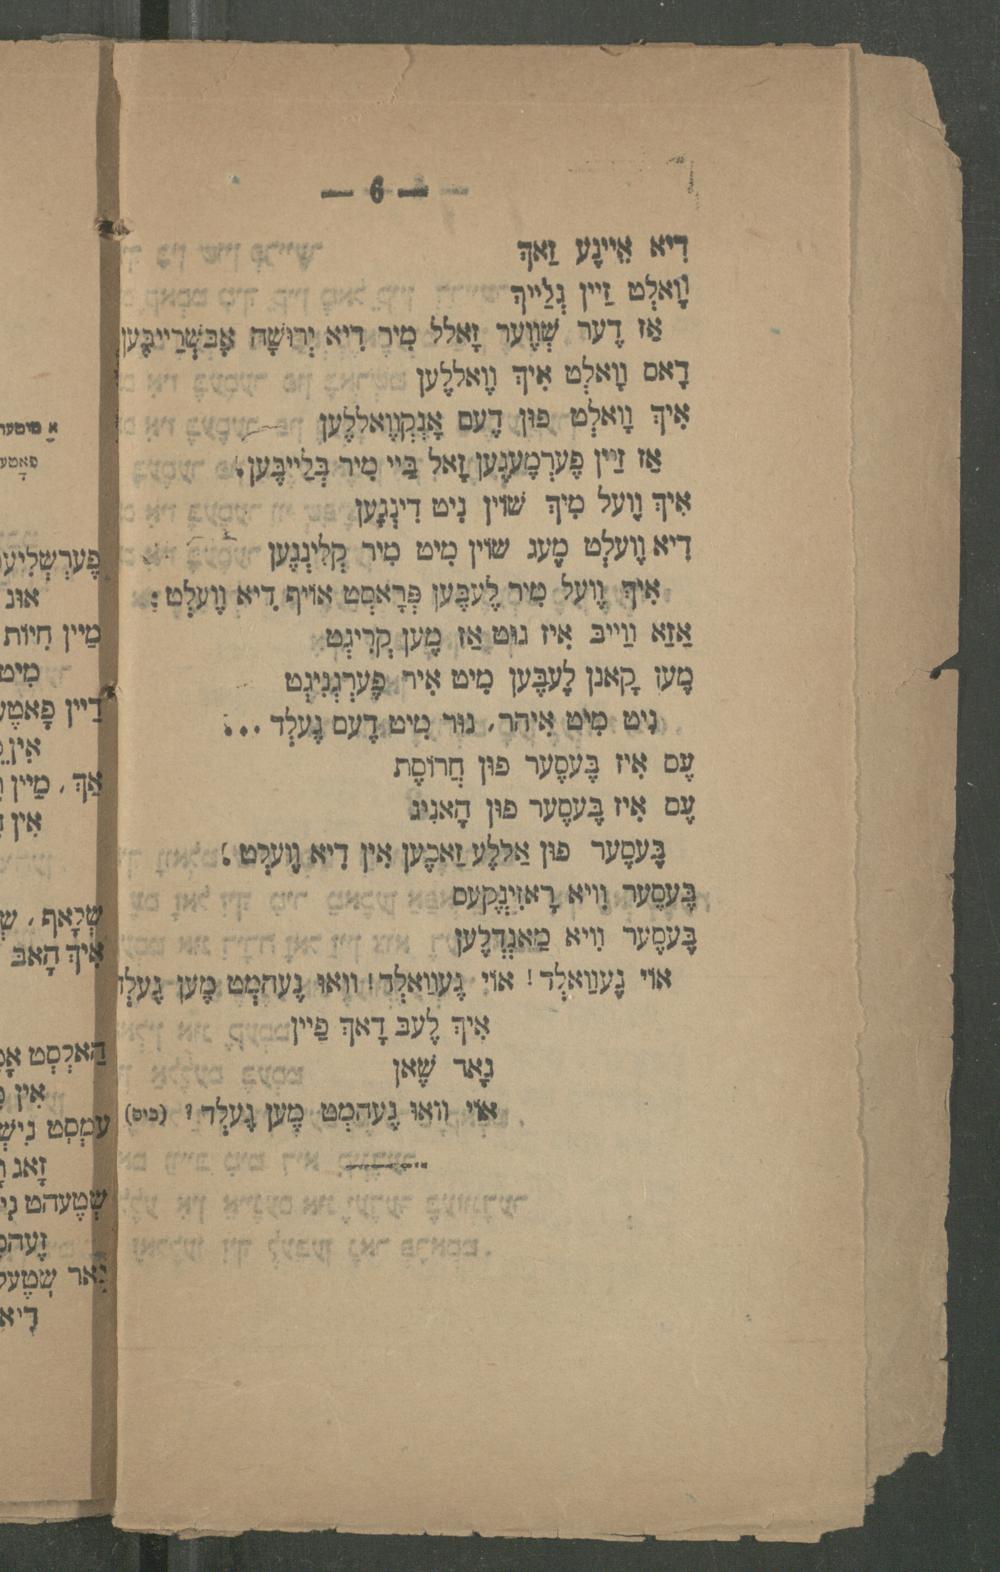 — 6 —
דִיא אֵיינֶע זַאךְ
וָואלְט זַיין גְלַייךְ
אַז דֶער שְׁוֶוער זָאלל מִיר דִיא יְרוּשָׁה אָבּשְׁרַייבֶּען
דָאס וָואלְט אִיךְ וֶואללֶען
אִיךְ וָואלְט פוּן דֶעם אָנְקְוֶואללֶען
אַז זַיין פֶערְמֶעגֶען זָאל בַּיי מִיר בְּלַייבֶּען.
אִיךְ וֶועל מִיךְ שׁוֹין נִיט דִינְגֶען
דִיא וֶועלְט מֶעג שׁוֹין מִיט מִיר קְלִינְגֶען
אִיךְ וֶועל מִיר לֶעבֶּען פְּרָאסְט אוֹיף דִיא וֶועלְט:
אַזַא וַוייבּ אִיז גוּט אַז מֶען קְרִיגְט
מֶען קָאנן לֶעבֶּען מִיט אִיר פֶערְגְנִיגְט
נִיט מִיט אִיהר, נוּר מִיט דֶעם גֶעלְד...
עֶס אִיז בֶּעסֶער פוּן חֲרוֹסֶת
עֶס אִיז בֶּעסֶער פוּן הָאנִיג
בֶּעסֶער פוּן אַללֶע זַאכֶען אִין דִיא וֶועלְט.
בֶּעסֶער וִויא רָאזִינְקֶעס
בֶּעסֶער וִויא מַאנְדְלֶען
אוֹי גֶעוַואלְד! אוֹי גֶעוַואלְד! וואוּ נֶעהמְט מֶען גֶעלְד
אִיךְ לֶעב דָאךְ פַיין
גָאר שֶׁאן
אוֹי וואוּ נֶעהמְט מֶען גֶעלְד? (ביס)
א מיטער
פָאטע
פֶערְשְלִיע
אוּנ
מַיין חִיוֹת
מִיט
דַיין פָאטֶע
אִין
אַךְ, מַיין
אִין
שְׁלָאף, שְׁ
אִיךְ הָאבּ
הַאלְסְט
אִין
עמְסְט נִישְׁ
זָאג
שְׁטֶעהט נִי
זֶעהס
גָאר שְׁטֶעל
דִיא